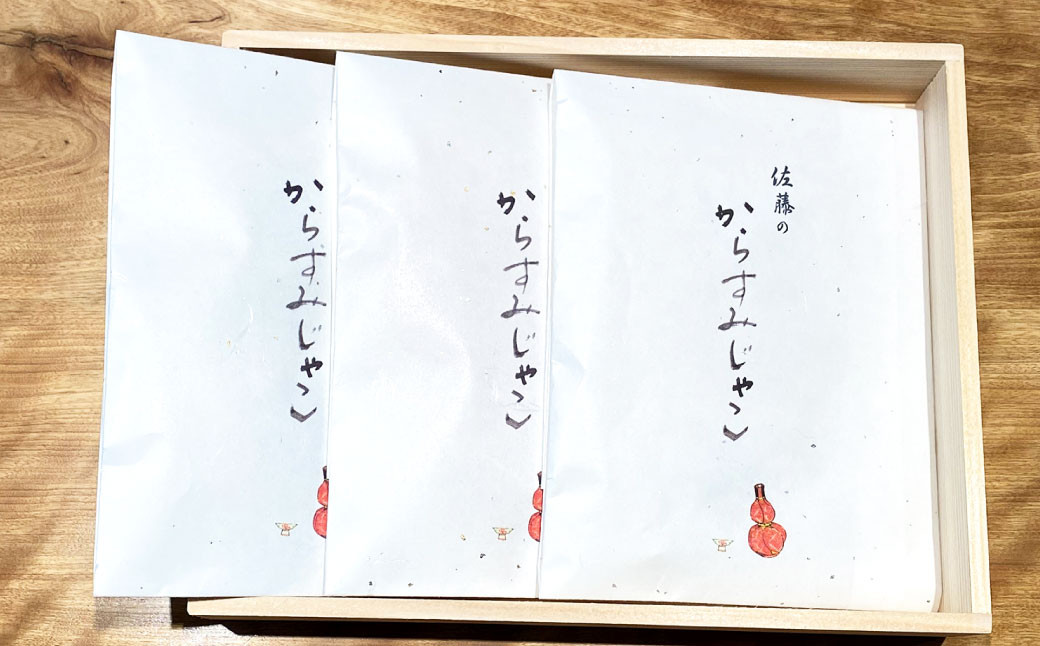 佐藤の
からすみじゃこ
からすみじゃこ
からすみじゃこ